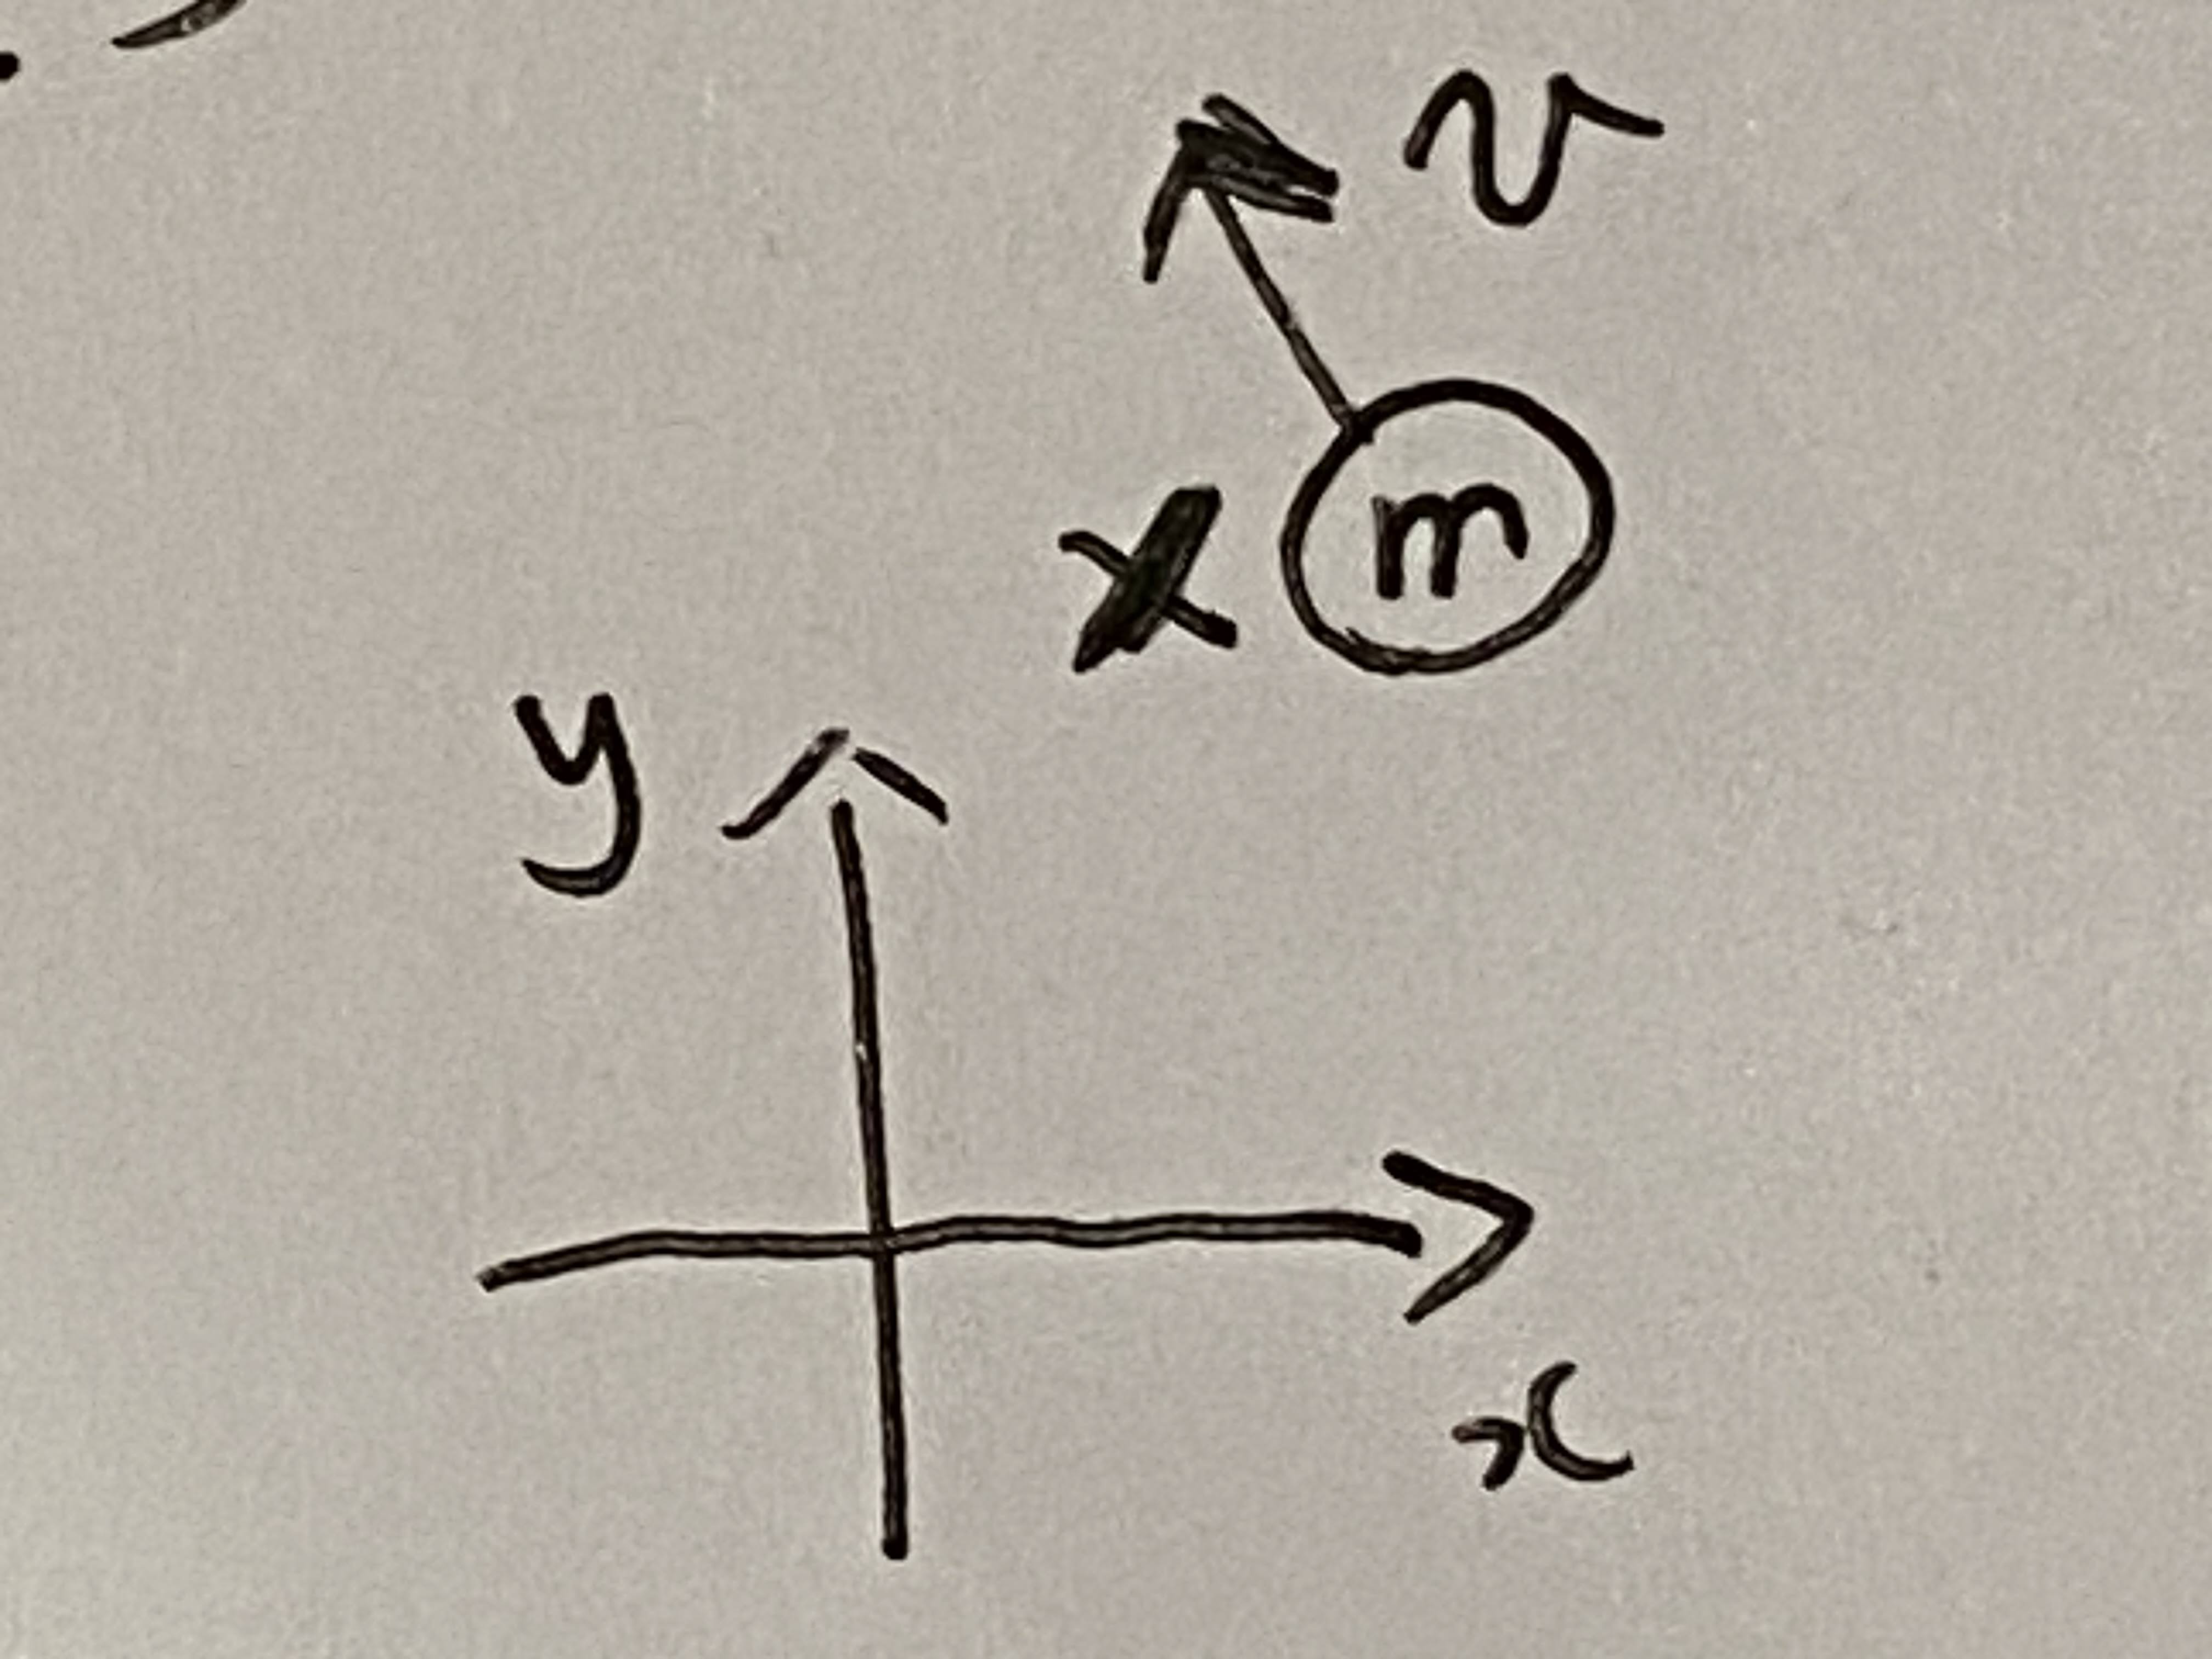 v
m
y
x